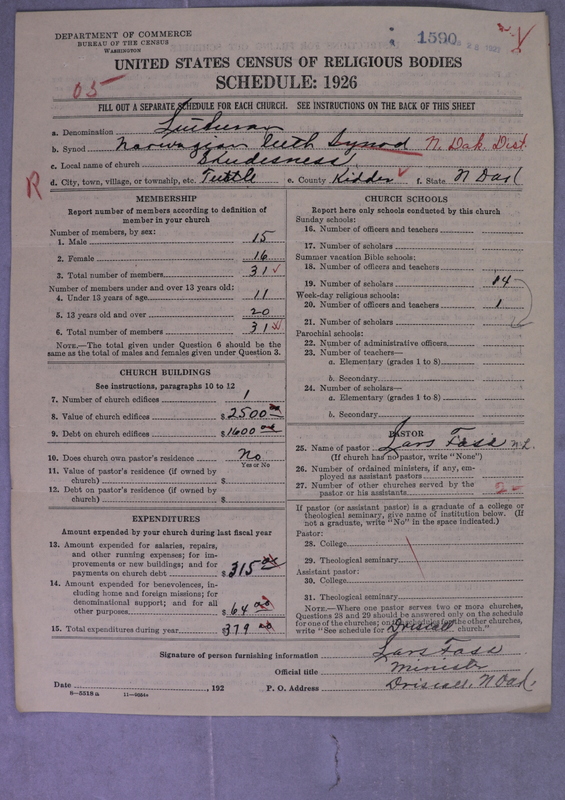 DEPARTMENT OF COMMERCE
BUREAU OF THE CENSUS
WASHINGTON
1590
UNITED STATES CENSUS OF RELIGIOUS BODIES
SCHEDULE: 1926
05-
FILL OUT A SEPARATE SCHEDULE FOR EACH CHURCH. SEE INSTRUCTIONS ON THE BACK OF THIS SHEET
a. Denomination Lutheran
b. Synod Norwegian Luth Synod N. Dak. Dist.
c. Local name of church Skudesness
d. City, town, village, or township, etc. Tuttle e. County Kidder f. State N Dak
R
MEMBERSHIP
Report number of members according to definition of member in your church
Number of members, by sex:
1. Male 15
2. Female 16
3. Total number of members 31
Number of members under and over 13 years old:
4. Under 13 years of age 11
5. 13 years old and over 20
6. Total number of members 31
NOTE.—The total given under Question 6 should be the same as the total of males and females given under Question 3.
CHURCH BUILDINGS
See instructions, paragraphs 10 to 12
7. Number of church edifices 1
8. Value of church edifices $2500
9. Debt on church edifices $1600
10. Does church own pastor's residence? No
Yes or No
11. Value of pastor's residence (if owned by church) $
12. Debt on pastor's residence (if owned by church) $
EXPENDITURES
Amount expended by your church during last fiscal year
13. Amount expended for salaries, repairs, and other running expenses; for improvements or new buildings; and for payments on church debt $315
14. Amount expended for benevolences, including home and foreign missions; for denominational support; and for all other purposes $64
15. Total expenditures during year $379
CHURCH SCHOOLS
Report here only schools conducted by this church
Sunday schools:
16. Number of officers and teachers
17. Number of scholars
Summer vacation Bible schools:
18. Number of officers and teachers
19. Number of scholars 14
Week-day religious schools:
20. Number of officers and teachers 1
21. Number of scholars
Parochial schools:
22. Number of administrative officers
23. Number of teachers—
a. Elementary (grades 1 to 8)
b. Secondary
24. Number of scholars—
a. Elementary (grades 1 to 8)
b. Secondary
PASTOR
25. Name of pastor Lars Fosse
(If church has no pastor, write "None")
26. Number of ordained ministers, if any, employed as assistant pastors
27. Number of other churches served by the pastor or his assistants
If pastor (or assistant pastor) is a graduate of a college or theological seminary, give name of institution below. (If not a graduate, write "No" in the space indicated.)
Pastor:
28. College
29. Theological seminary
Assistant pastor:
30. College
31. Theological seminary
NOTE.—Where one pastor serves two or more churches, Questions 28 and 29 should be answered only on the schedule for one of the churches; on the schedules for the other churches, write "See schedule for Driscoll church."
Signature of person furnishing information Lars Fosse
Official title Minister
Date , 192 P. O. Address Driscoll, N Dak.
8—5518a 11—9384a